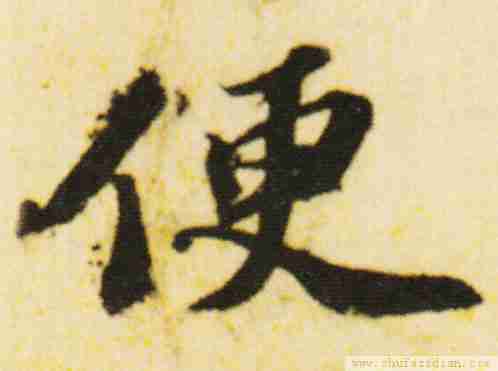 便
www.shufazidian.com